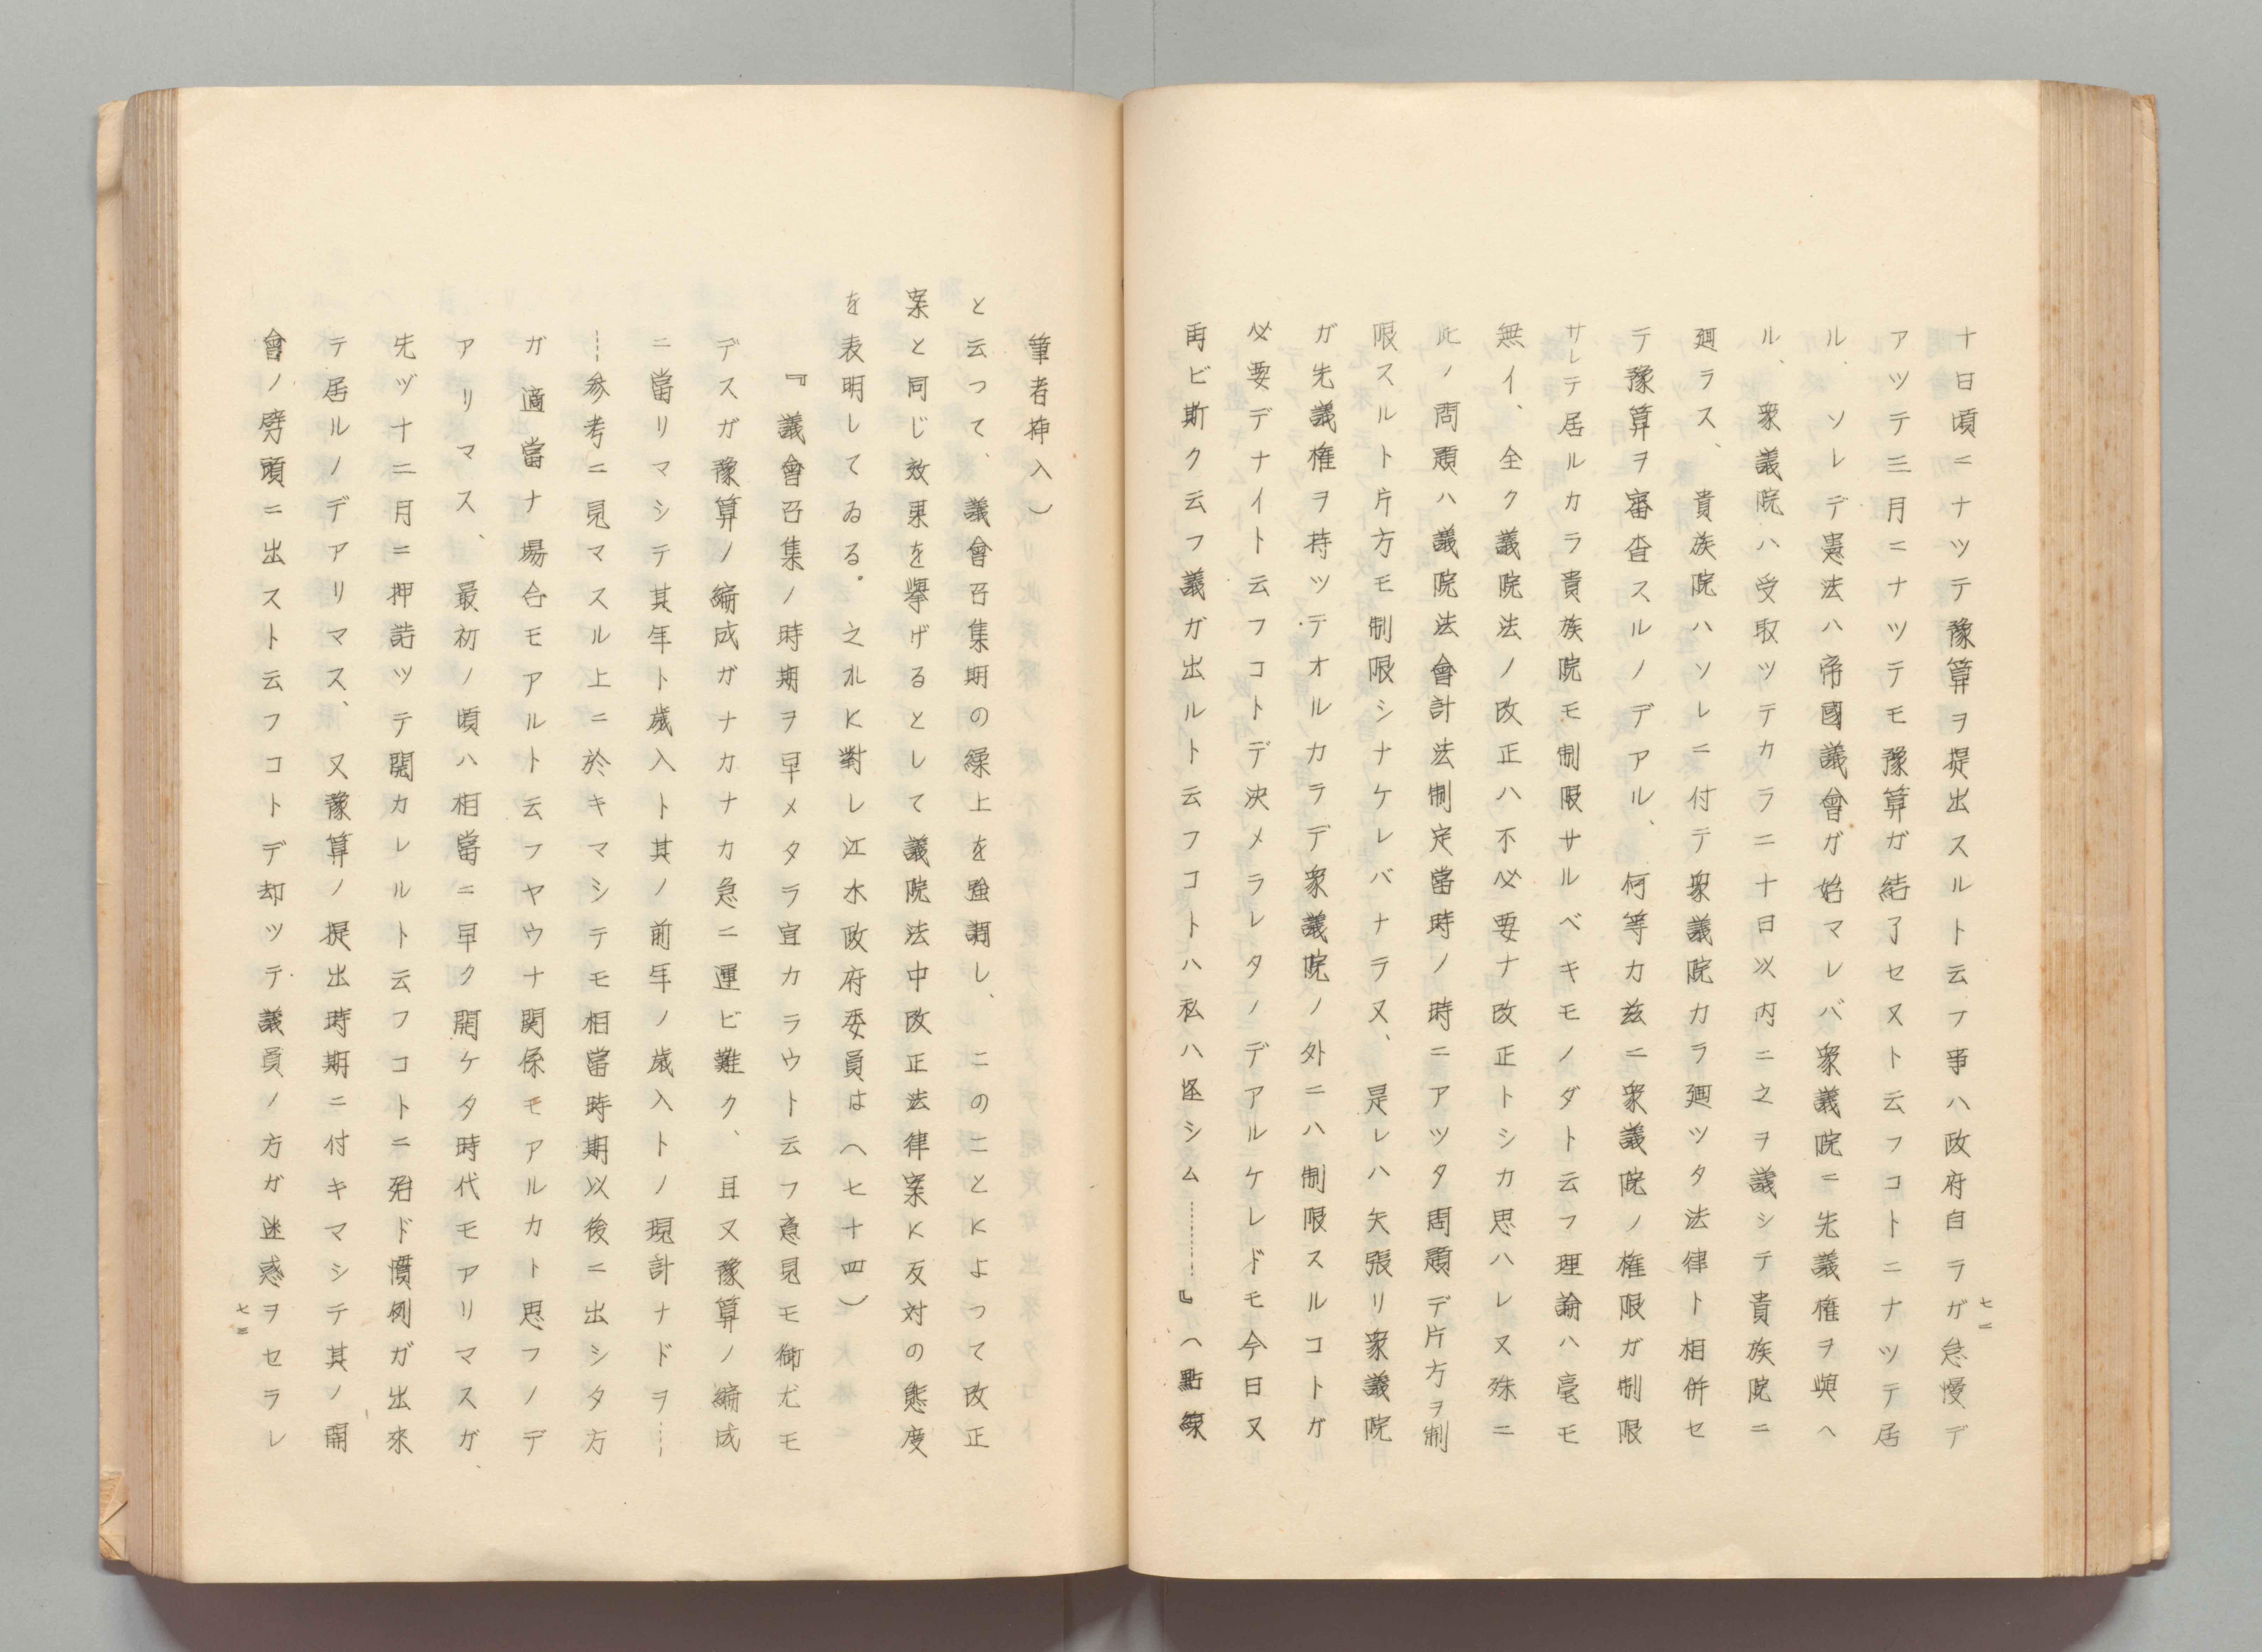 十日頃ニナツテ豫算ヲ提出スルト云フ事ハ政府自ラガ怠慢デ
アツテ三月ニナツテモ豫算ガ結了セヌト云フコトニナツテ居
ル、ソレデ憲法ハ帝國議會ガ始マレバ衆議院ニ先議権ヲ與ヘ
ル、衆議院ハ受取ツテカラ二十日以内ニ之ヲ議シテ貴族院ニ
廻ラス、貴族院ハソレニ付テ衆議院カラ廻ツタ法律ト相併セ
テ豫算ヲ審査スルノデアル、何等カ茲ニ衆議院ノ権限ガ制限
サレテ居ルカラ貴族院モ制限サルベキモノダト云フ理論ハ毫モ
無イ、全ク議院法ノ改正ハ不必要ナ改正トシカ思ハレヌ殊ニ
此ノ問題ハ議院法會計法制定當時ノ時ニアツタ問題デ片方ヲ制
限スルト片方モ制限シナケレバナラヌ、是レハ矢張リ衆議院
ガ先議権ヲ持ツテオルカラデ衆議院ノ外ニハ制限スルコトガ
必要デナイト云フコトデ決メラレタノデアルケレドモ今日又
再ビ斯ク云フ議ガ出ルト云フコトハ私ハ怪シム…………』（點線
七二
筆者挿入）
と云つて、議會召集期の繰上を強調し、このことによつて改正
案と同じ效果を擧げるとして議院法中改正法律案に反対の態度
を表明してゐる。之れに對し江木政府委員は（七十四）
『議會召集ノ時期ヲ早メタラ宜カラウト云フ意見モ御尤モ
デスガ豫算ノ編成ガナカナカ急ニ運ビ難ク、且又豫算ノ編成
ニ當リマシテ其年ト歳入ト其ノ前年ノ歳入トノ現計ナドヲ……
…参考ニ見マスル上ニ於キマシテモ相當時期以後ニ出シタ方
ガ適當ナ場合モアルト云フヤウナ関係モアルカト思フノデ
アリマス、最初ノ頃ハ相當ニ早ク開ケタ時代モアリマスガ、
先ヅ十二月ニ押詰ツテ開カレルト云フコトニ殆ド慣例ガ出來
テ居ルノデアリマス、又豫算ノ提出時期ニ付キマシテ其ノ開
會ノ劈頭ニ出スト云フコトデ却ツテ議員ノ方ガ迷惑ヲセラレ
七三